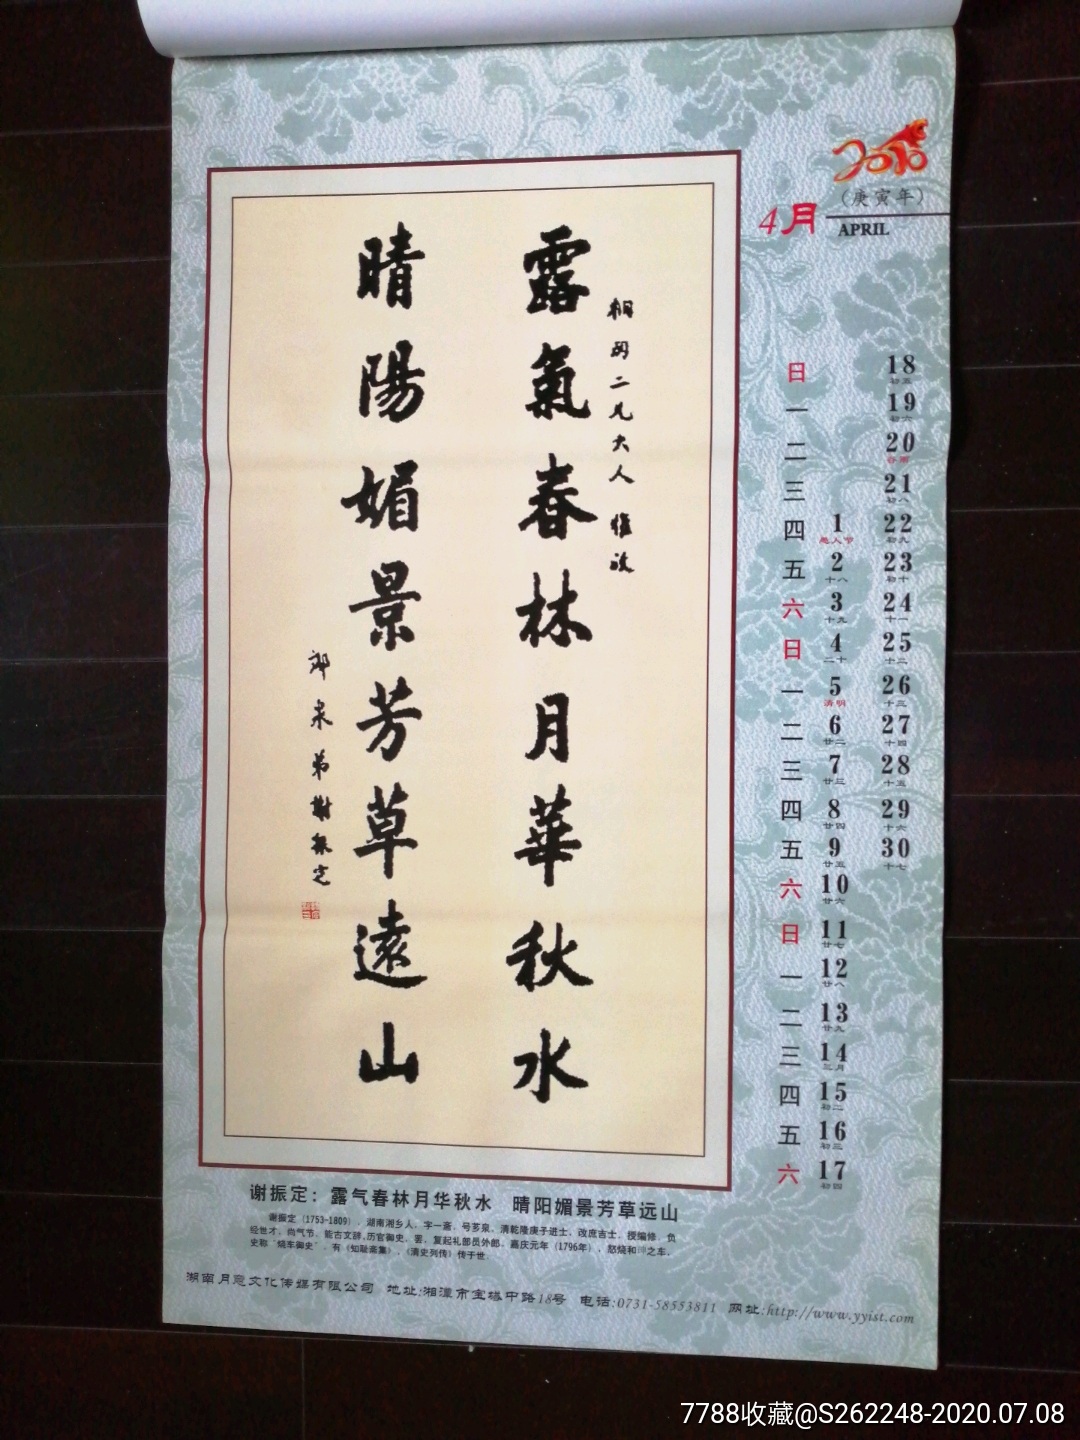 2010
（庚寅年）
4月
APRIL
露氣春林月華秋水
二兄大人
晴陽媚景芳草遠山
弟謝振定
日 18 初五
一 19 初六
二 20 谷雨
三 21 初八
四 1 愚人节 22 初九
五 2 十八 23 初十
六 3 十九 24 十一
日 4 二十 25 十二
一 5 清明 26 十三
二 6 廿二 27 十四
三 7 廿三 28 十五
四 8 廿四 29 十六
五 9 廿五 30 十七
六 10 廿六
日 11 廿七
一 12 廿八
二 13 廿九
三 14 三月
四 15 初二
五 16 初三
六 17 初四
谢振定：露气春林月华秋水 晴阳媚景芳草远山
谢振定（1753-1809），湖南湘乡人，字一斋，号芗泉，清乾隆庚子进士，改庶吉士，授编修，负
经世才，尚气节，能古文辞，历官御史。罢，复起礼部员外郎，嘉庆元年（1796年），怒烧和珅之车，
史称“烧车御史”。有《知耻斋集》，《清史列传》传于世
湖南月意文化传媒有限公司 地址:湘潭市宝塔中路18号 电话:0731-58553811 网址:http://www.yyist.com
7788收藏@S262248-2020.07.08